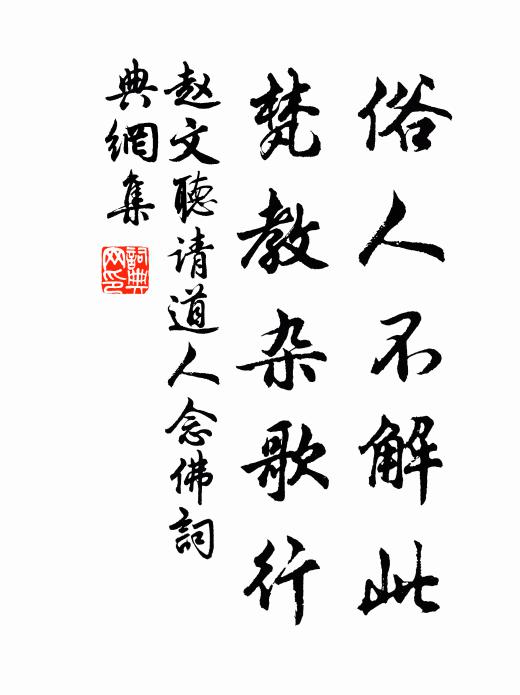 俗人不解此
梵教杂歌行
赵文聽请道人念佛詞
典網集
詞典网印